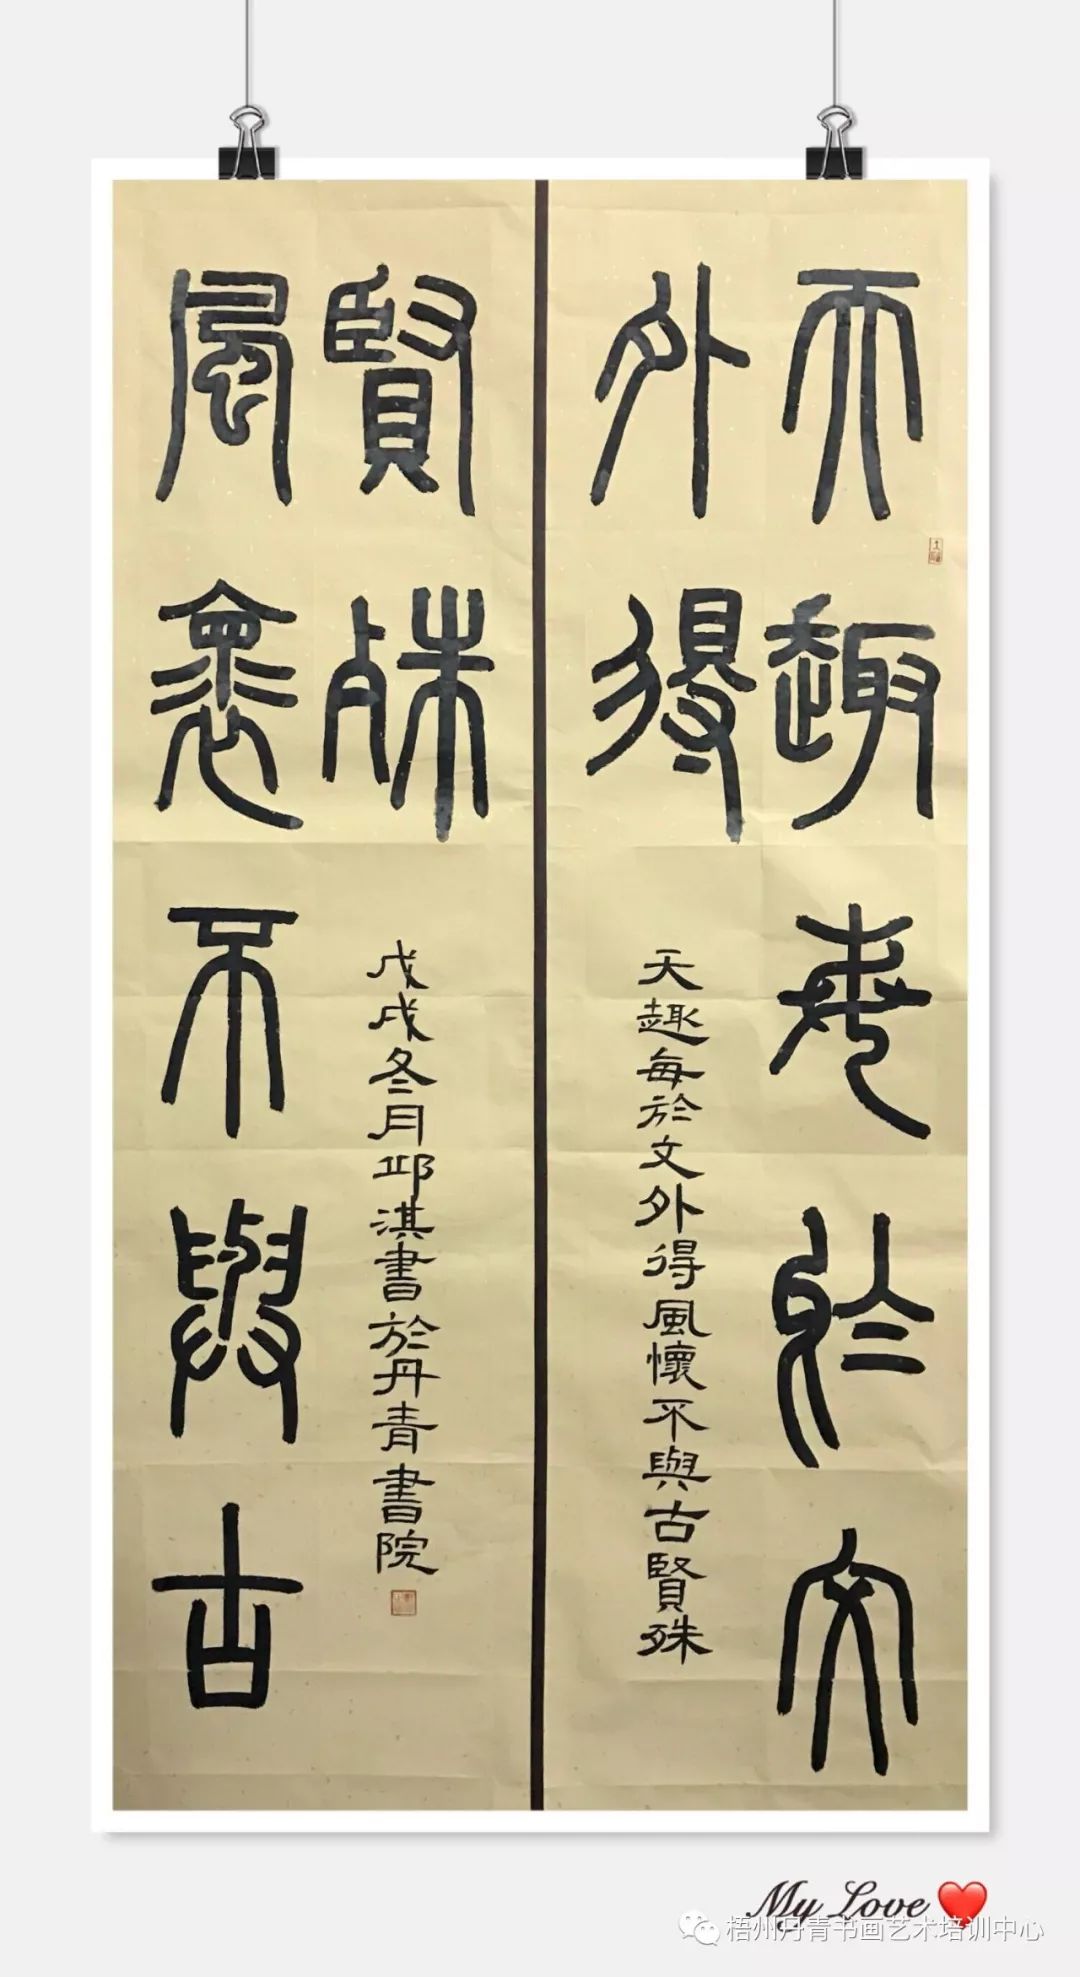 天趣每於文
外得
天趣每於文外得風懷不與古賢殊
賢殊
風懷不與古
戊戌冬月邱淇書於丹青書院
My Love
梧州丹青书画艺术培训中心